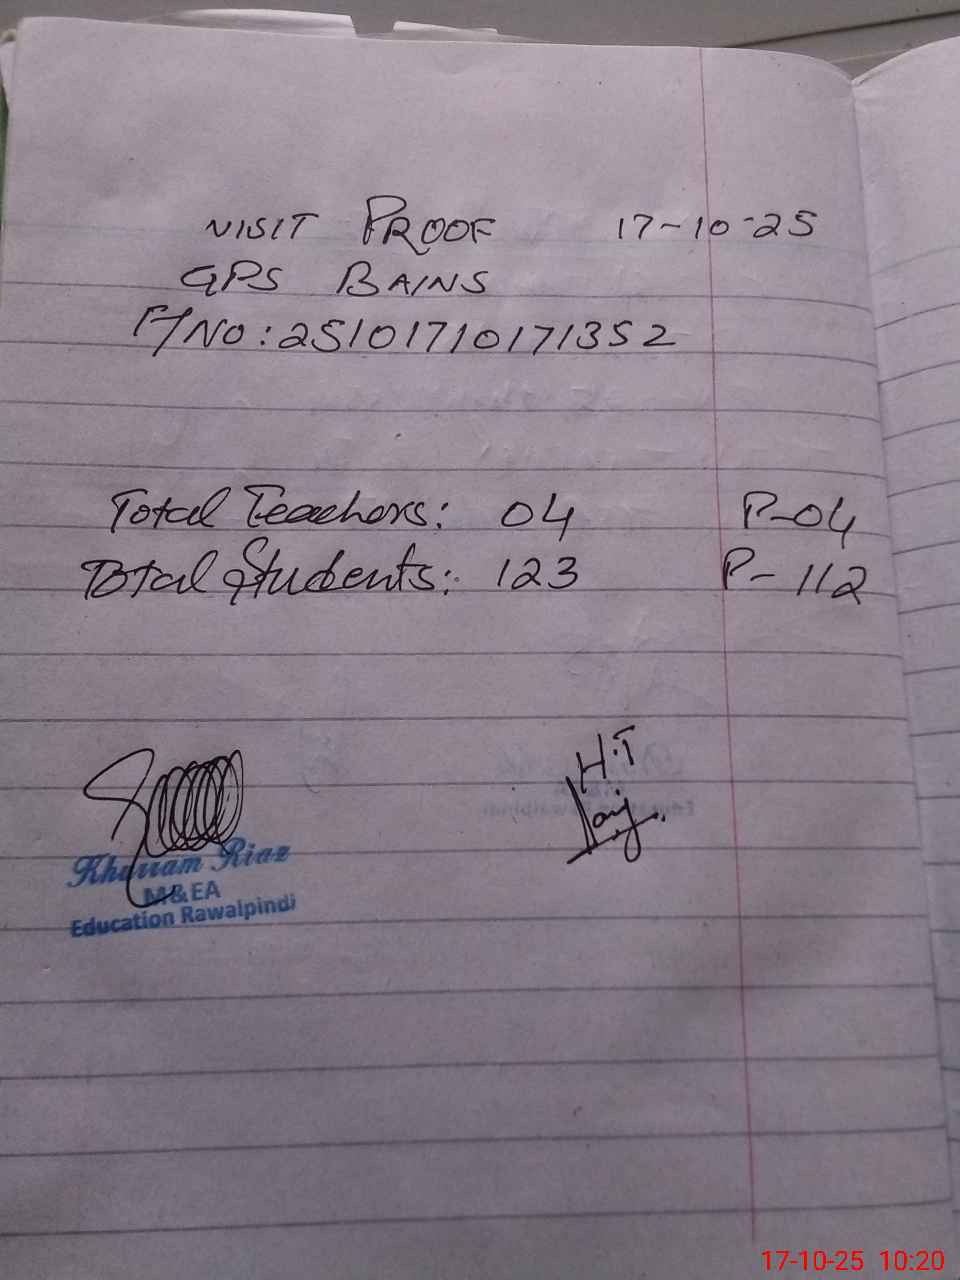 VISIT PROOF 17-10-25
GPS BAINS
F/NO: 25101710171352
Total Teachers: 04 P-04
Total Students: 123 P-112
H.T
Khurram Riaz
M&EA
Education Rawalpindi
17-10-25 10:20